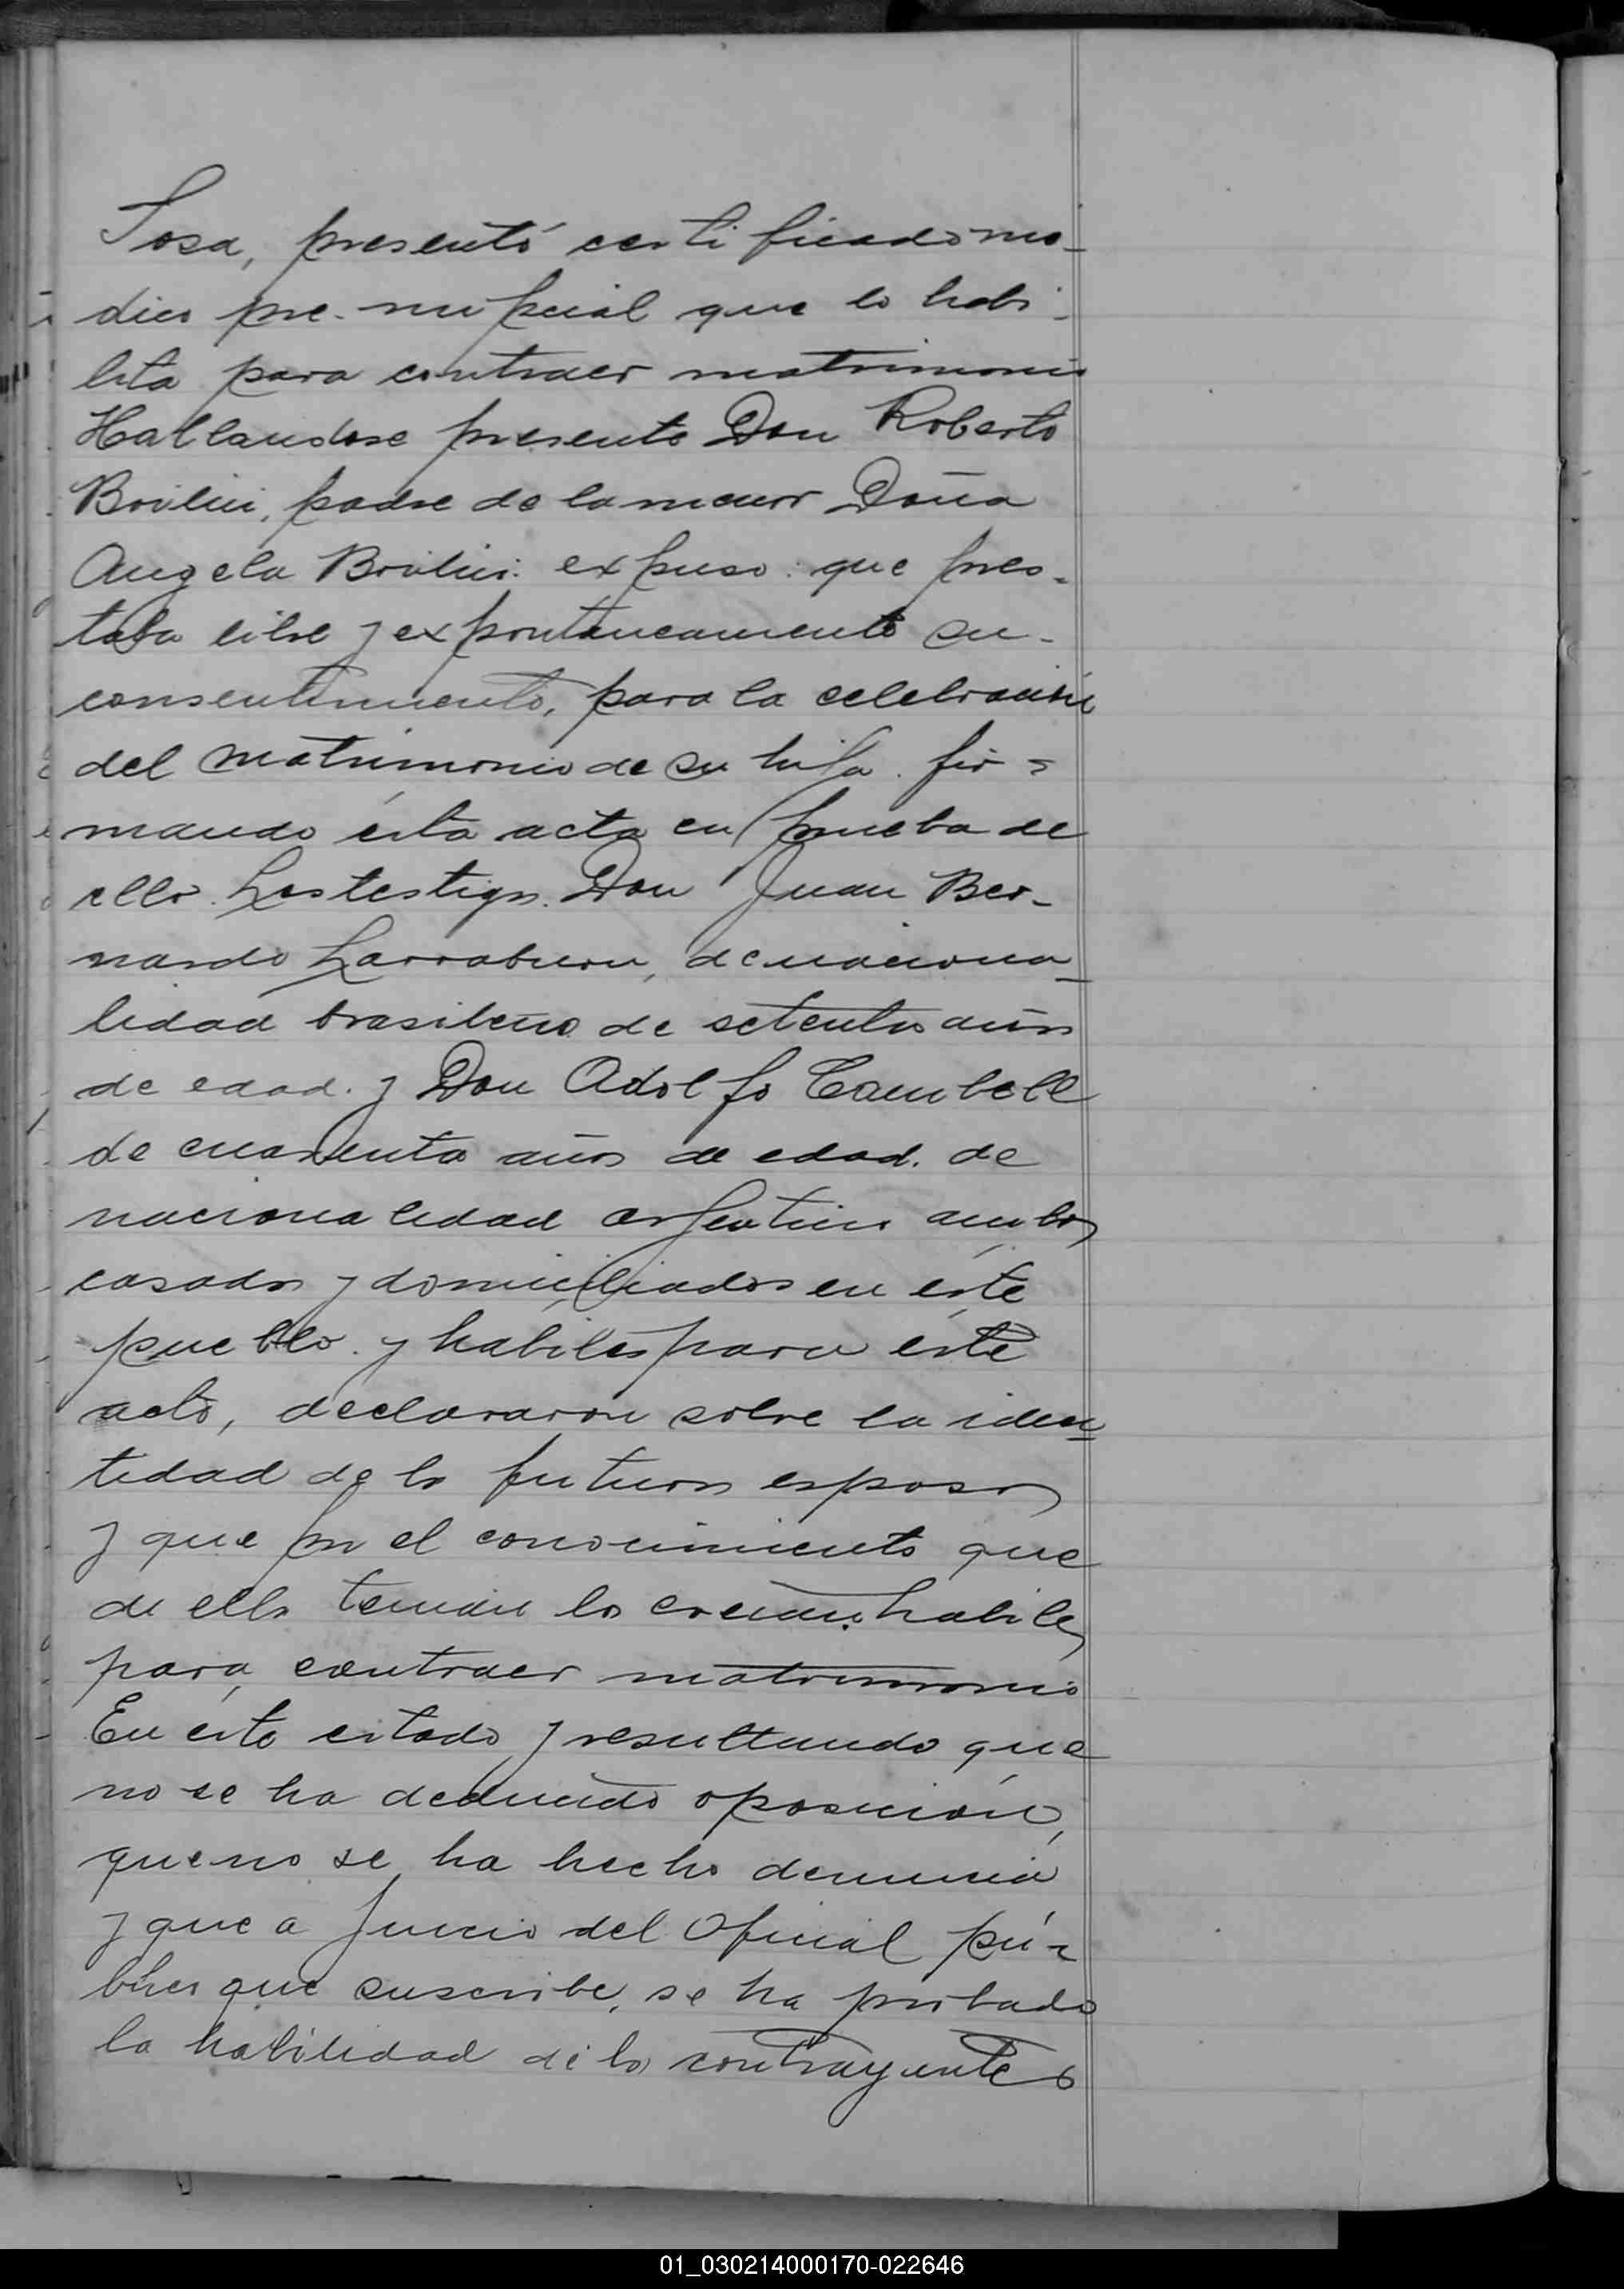 Sosa, presentó certificado mé-
dico pre-nupcial que lo habi-
lita para contraer matrimonio
Hallandose presente Don Roberto
padre de la menor Doña
Angela expuso: que pres-
taba libre y expontaneamente su
consentimiento, para la celebración
del matrimonio de su hija. fir-
mando ésta acta en prueba de
ello. Los testigos. Don Juan Ber-
nardo Larraburu, de naciona-
lidad brasileño de setenta años
de edad. y Don Adolfo Cambell
de cuarenta años de edad. de
nacionalidad argentino ambos
casados y domiciliados en éste
pueblo. y habiles para éste
acto, declararon sobre la iden-
tidad de los futuros esposos
y que por el conocimiento que
de ellos tenían los creían habiles
para, contraer matrimonio
En este estado y resultando que
no se ha deducido oposición,
que no se ha hecho denuncia
y que a juicio del Oficial pú-
blico que suscribe, se ha probado
la habilidad de los contrayentes
01_030214000170-022646